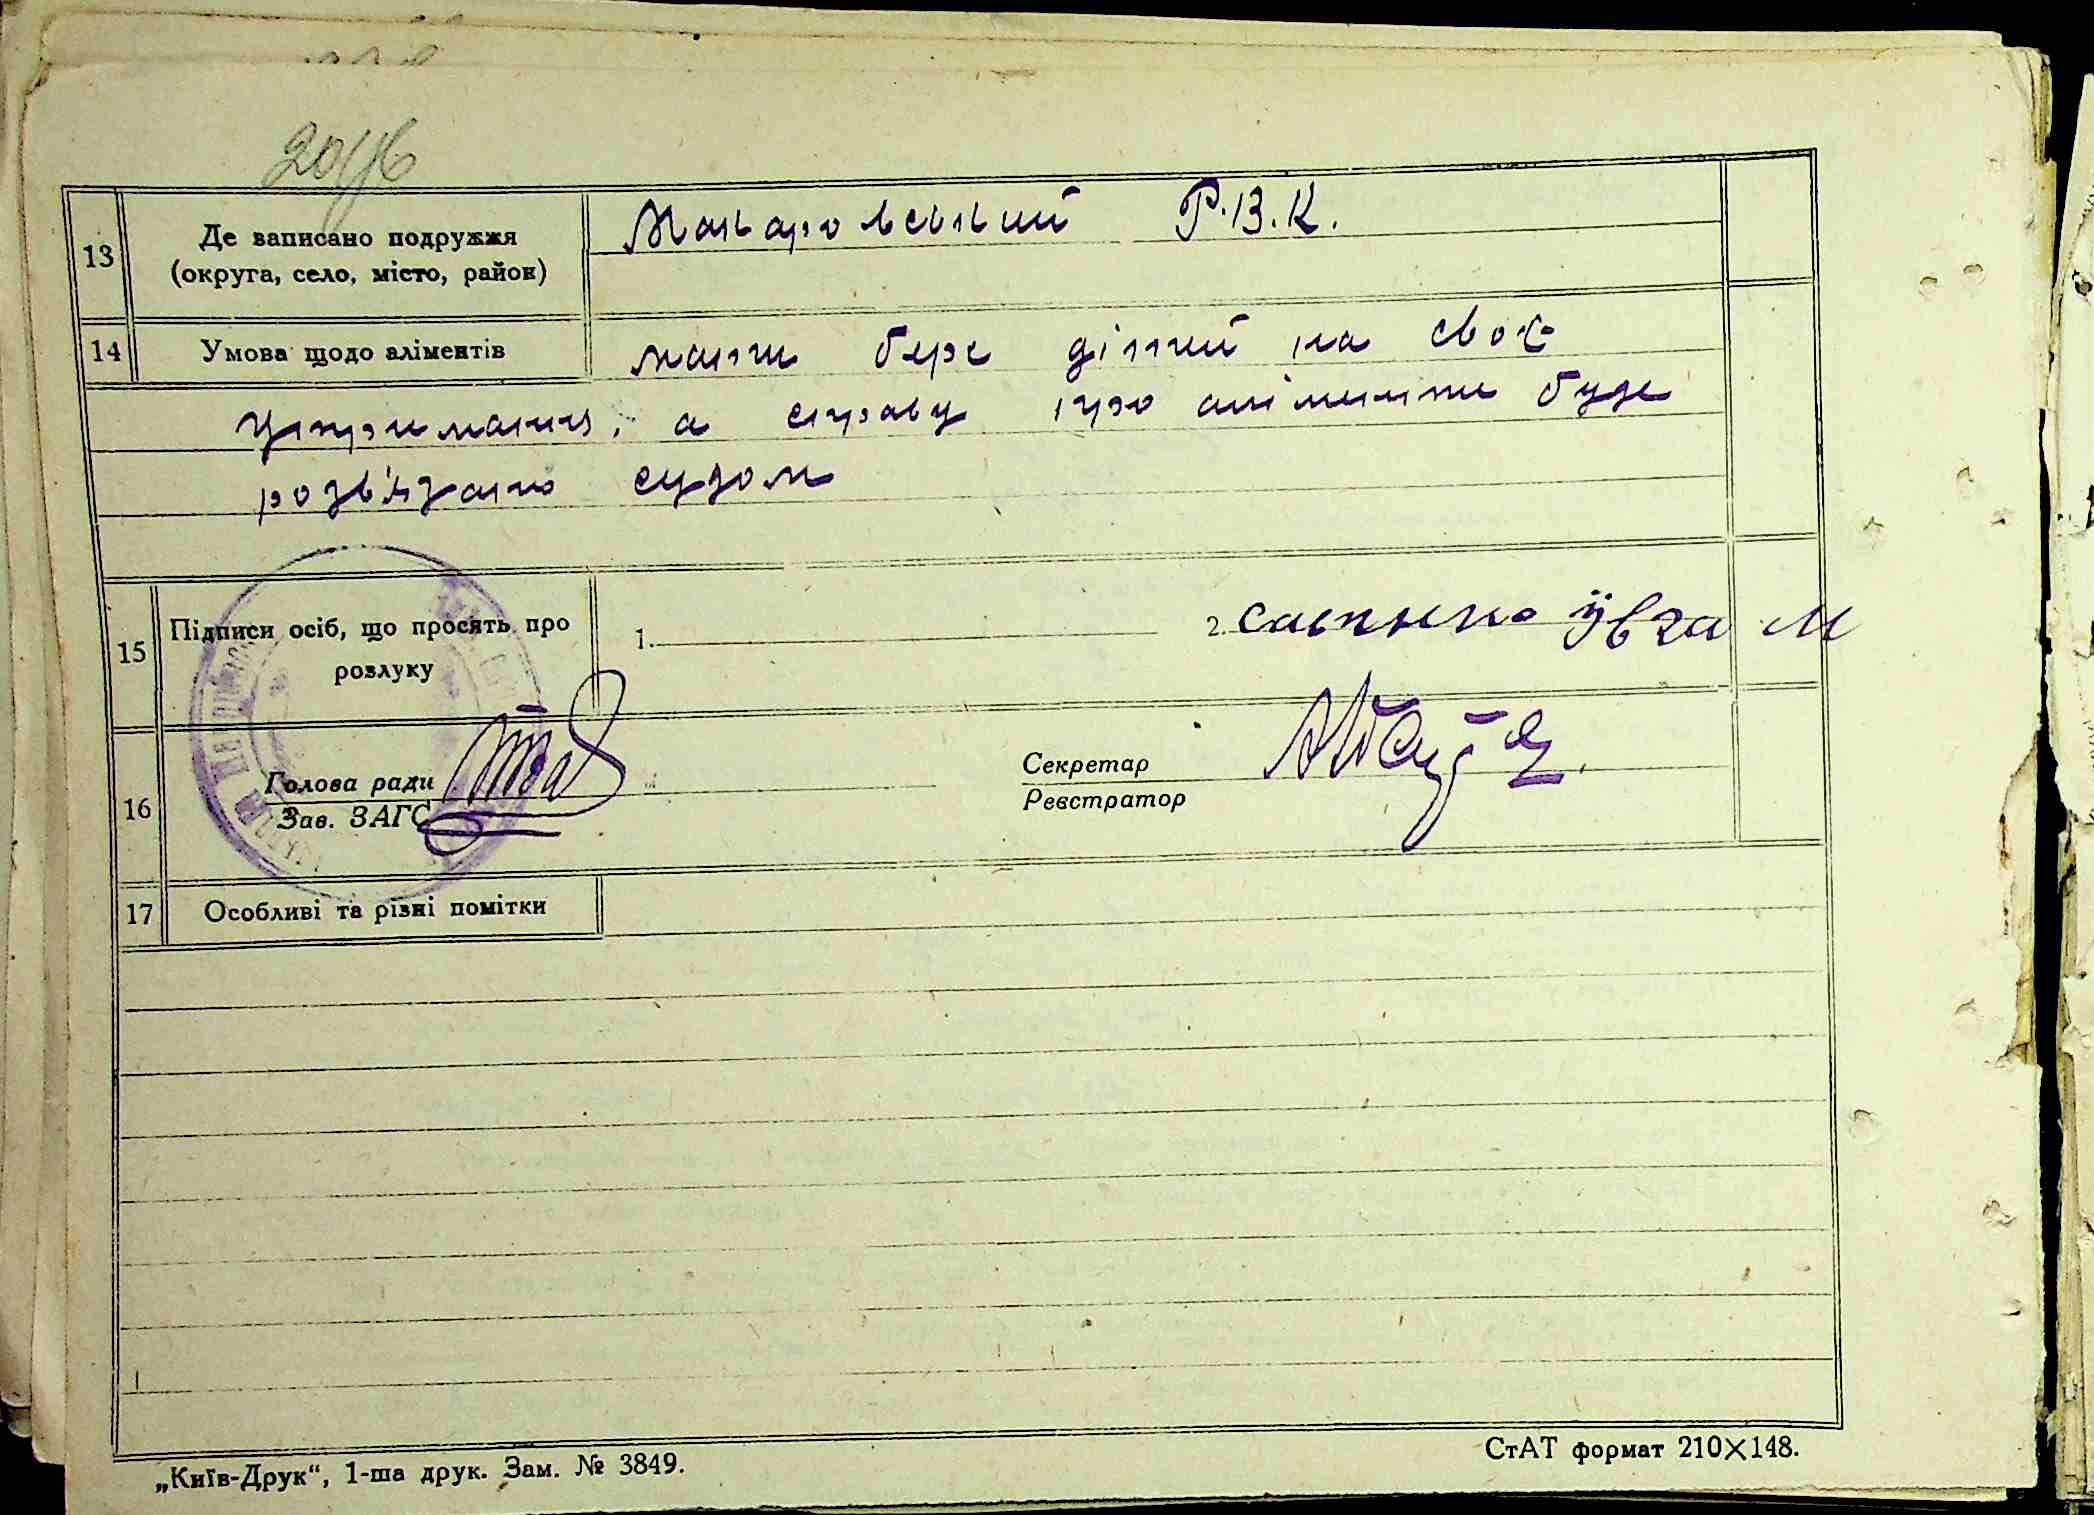 13
Де записано подружжя
(округа, село, місто, район)
Макаровський Р.В.К.
14
Умова щодо аліментів
мати бере дітий на своє
утримання, а справу про аліменти буде
розв'язано судом
15
Підписи осіб, що просять про
розлуку
1.
2.
16
Голова ради
Зав. ЗАГС
Секретар
Реєстратор
17
Особливі та різні помітки
„Київ-Друк“, 1-ша друк. Зам. № 3849.
СтАТ формат 210×148.